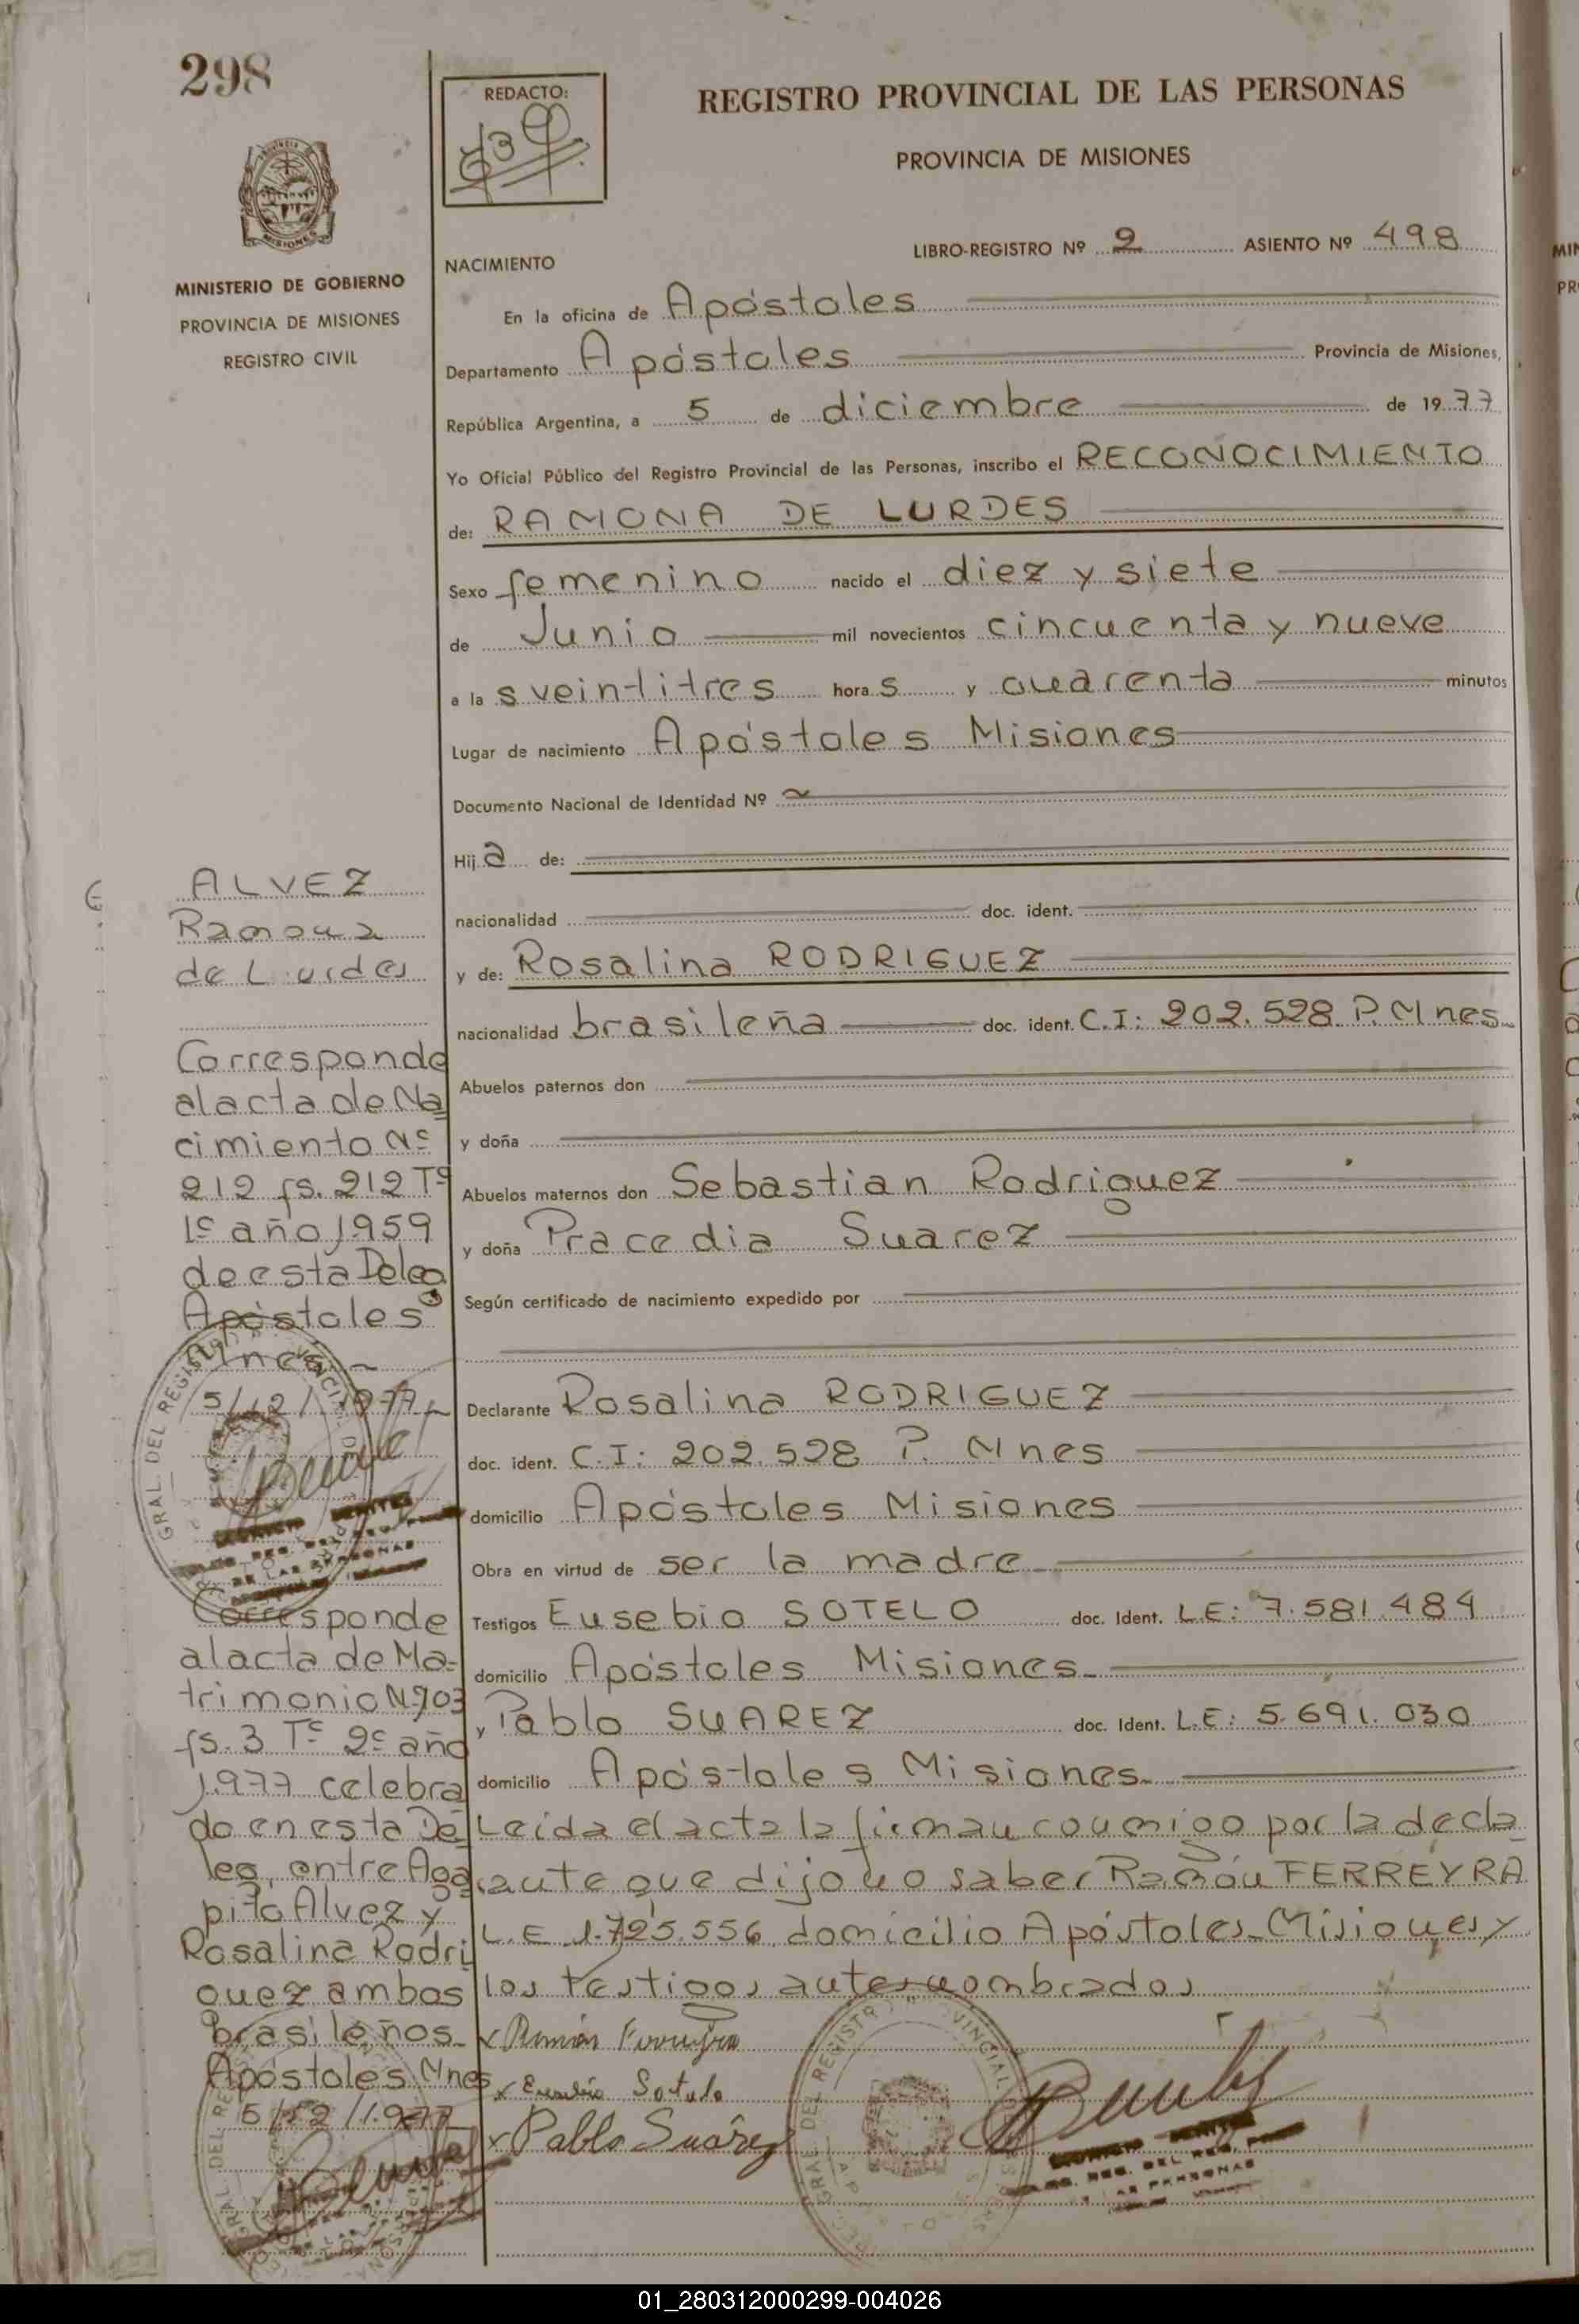 298
REDACTO:
REGISTRO PROVINCIAL DE LAS PERSONAS
PROVINCIA DE MISIONES
MISIONES
MINISTERIO DE GOBIERNO
PROVINCIA DE MISIONES
REGISTRO CIVIL
NACIMIENTO
LIBRO-REGISTRO Nº 2 ASIENTO Nº 498
En la oficina de Apóstoles
Departamento Apóstoles Provincia de Misiones,
República Argentina, a 5 de diciembre de 1977
Yo Oficial Público del Registro Provincial de las Personas, inscribo el RECONOCIMIENTO
de: RAMONA DE LURDES
Sexo femenino nacido el diez y siete
de Junio mil novecientos cincuenta y nueve
a la s veintitres hora s y cuarenta minutos
Lugar de nacimiento Apóstoles Misiones
Documento Nacional de Identidad Nº
Hij a de:
nacionalidad doc. ident.
y de: Rosalina RODRIGUEZ
nacionalidad brasileña doc. ident. C.I: 202.528 P. Mnes.
Abuelos paternos don
y doña
Abuelos maternos don Sebastian Rodriguez
y doña Pracedia Suarez
Según certificado de nacimiento expedido por
Declarante Rosalina RODRIGUEZ
doc. ident. C.I: 202.528 P. Mnes
domicilio Apóstoles Misiones
Obra en virtud de ser la madre
Testigos Eusebio SOTELO doc. Ident. L.E: 7.581.484
domicilio Apóstoles Misiones
y Pablo SUAREZ doc. Ident. L.E: 5.691.030
domicilio Apóstoles Misiones
Leida el acta la firman conmigo por la decla
rante que dijo no saber Ramón FERREYRA
L.E 1.725.556 domicilio Apóstoles Misiones y
los testigos antes nombrados
x Ramón Ferreyra
x Eusebio Sotelo
x Pablo Suárez
ALVEZ
Ramona
de Lurdes
Corresponde
al acta de Na
cimiento Nº
212 fs. 212 Tº
1º año 1959
de esta Deleg
Apóstoles
Mnes
5/12/1977
Corresponde
al acta de Ma-
trimonio Nº 203
fs. 3 Tº 2º año
1.977 celebra
do en esta De
leg, entre Aga
pito Alvez y
Rosalina Rodri
guez ambos
brasileños
Apóstoles Mnes
5/12/1.977
GRAL. DEL REGISTRO
01_280312000299-004026